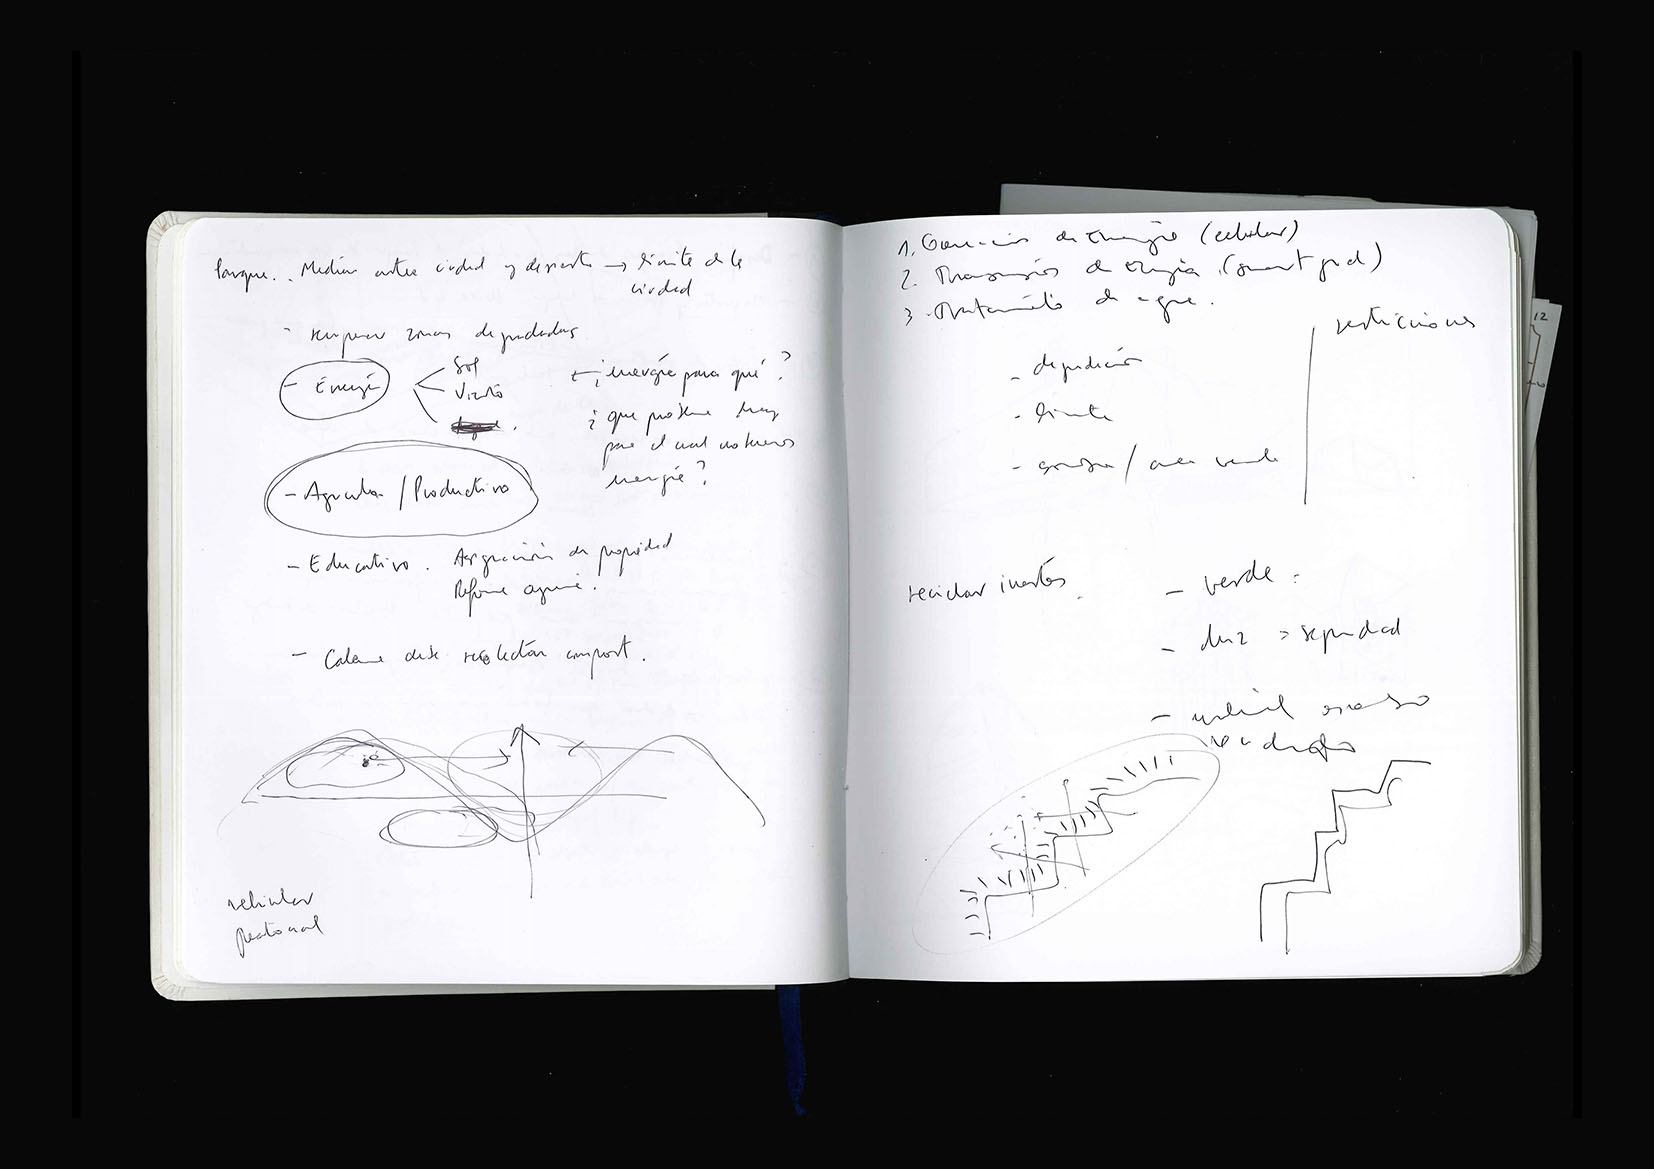 Parque.. Mediar entre ciudad y desierto → límite de la
ciudad
- recuperar zonas degradadas
- Energía
Sol
Viento
¿energía para qué?
¿que problema hay
para el cual no tenemos
energía?
- Agrícola / Productivo
- Educativo. Asignación de propiedad
Reforma agraria.
- recolectar compost.
vehicular
peatonal
1. Generación de Energía (celular)
2. Transmisión de Energía (smart grid)
3. Tratamiento de agua.
restricciones
- depredación
- límite
- / area verde
reciclar inertes
- verde:
- luz > seguridad